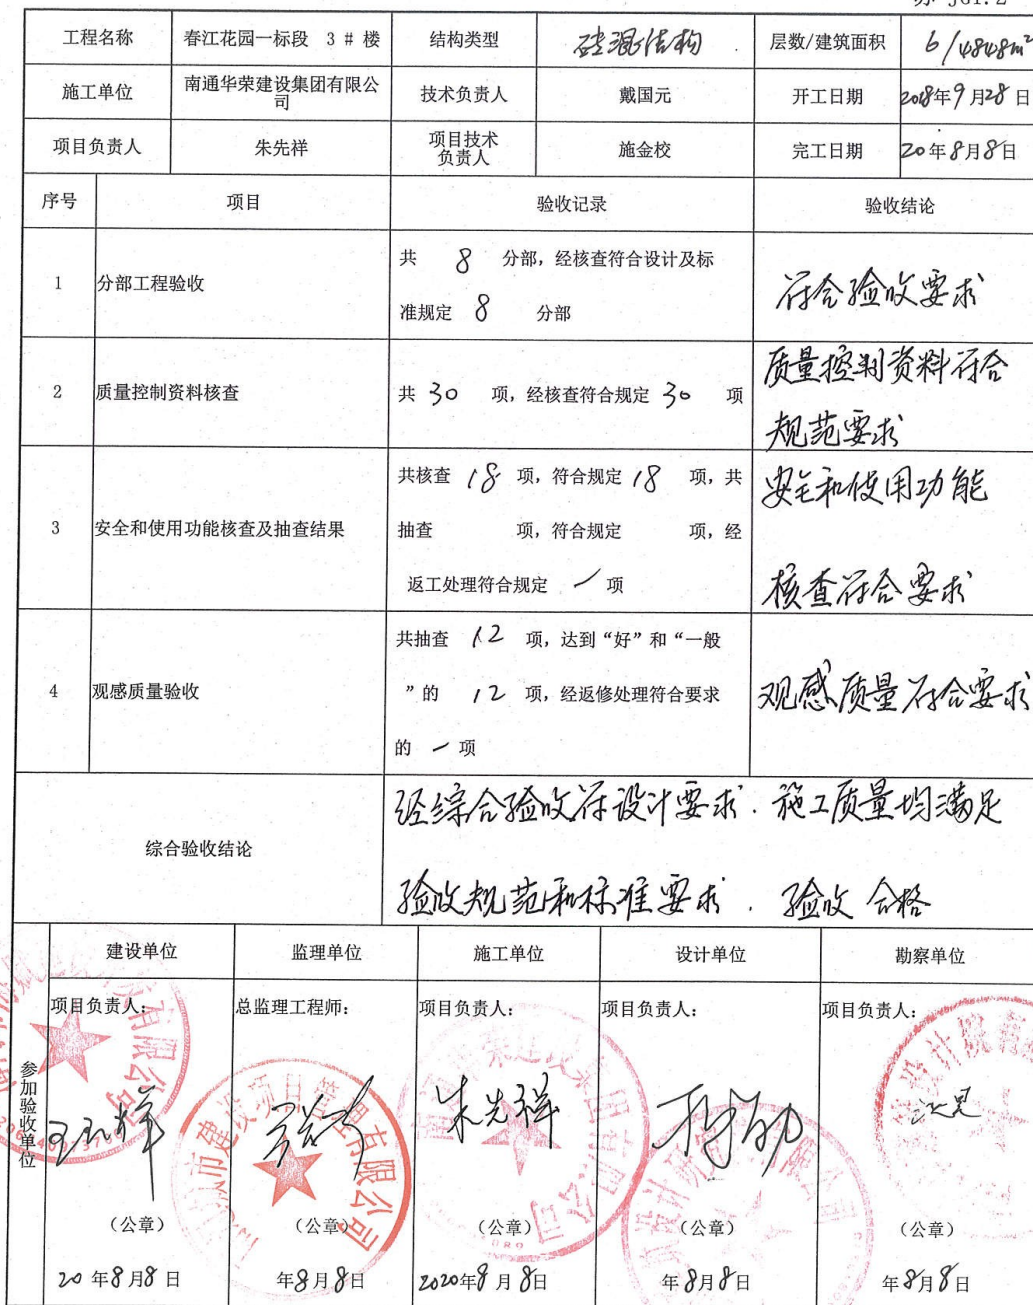 苏 JG1.2
工程名称 春江花园一标段 3 # 楼 结构类型 砖混结构 层数/建筑面积 6/4848m²
施工单位 南通华荣建设集团有限公
司 技术负责人 戴国元 开工日期 2018年9月28日
项目负责人 朱先祥 项目技术
负责人 施金校 完工日期 20年8月8日
序号 项目 验收记录 验收结论
1 分部工程验收 共 8 分部，经核查符合设计及标
准规定 8 分部 符合验收要求
2 质量控制资料核查 共 30 项，经核查符合规定 30 项 质量控制资料符合
规范要求
3 安全和使用功能核查及抽查结果 共核查 18 项，符合规定 18 项，共
抽查 项，符合规定 项，经
返工处理符合规定 / 项 安全和使用功能
核查符合要求
4 观感质量验收 共抽查 12 项，达到“好”和“一般
”的 12 项，经返修处理符合要求
的 / 项 观感质量符合要求
综合验收结论 经综合验收符设计要求．施工质量均满足
验收规范和标准要求．验收合格
参加验收单位
建设单位 监理单位 施工单位 设计单位 勘察单位
项目负责人： 总监理工程师： 项目负责人： 项目负责人： 项目负责人：
有限公司
市建设项目管理有限公司
朱先祥
（公章） （公章） （公章） （公章） （公章）
20年8月8日 年8月8日 2020年8月8日 年8月8日 年8月8日